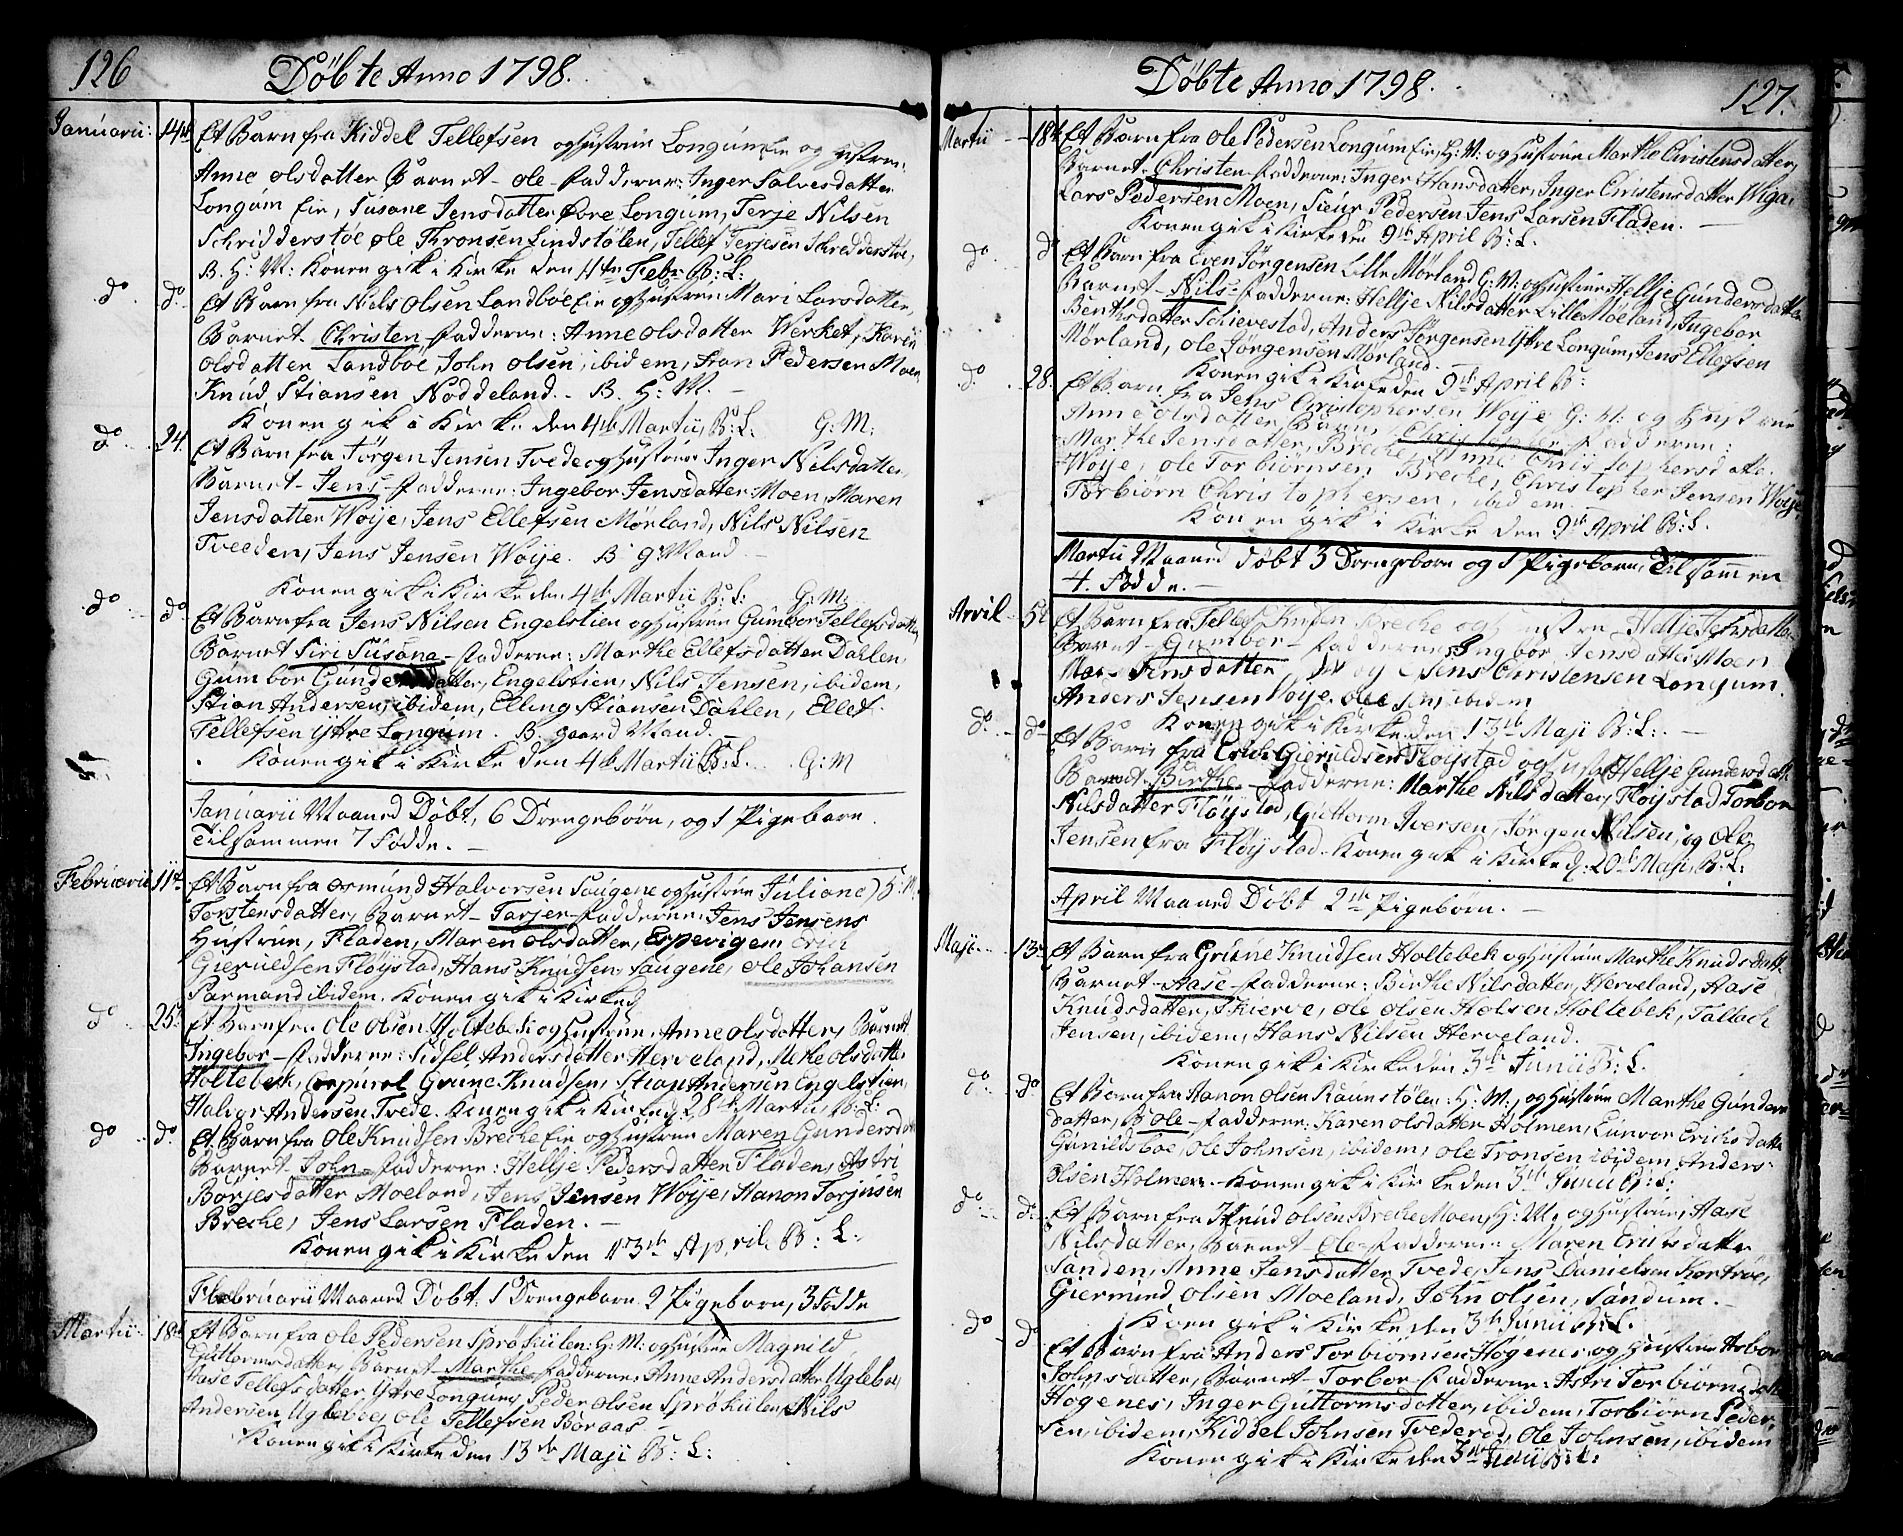 126 Döbte Anno 1798.
Januarii: 14de Et Barn fra Kiddel Tellefsen og Hustrue Longum Eie og Hustrue
Anne olsdatter Barnet - ole - Fadderne: Inger Salvesdatter
Longum Eie, Susane Jensdatter Övre Longum, Terje Nilsen
Schridderstöe ole Thronsen Lindstölen, Tellef Terjesen Schredderstöe,
B. H: M: Konen gik i Kirke den 4de Febr B: L:
do do Et Barn fra Niels Olsen Landböe Eie og Hustrue Mari Larsdatter,
Barnet - Christen, Fadderne: Anne olsdatter Werket, Karen
olsdatter Landböe, John olsen, ibidem, Han Pedersen Moen
Knud Stiansen Nöddeland. - B. H: M. -
Konen gik i Kirke den 4de Martii, B: L: G: M:
do 24. Et Barn fra Jörgen Jensen Tvede og Hustrue Inger Nilsdatter,
Barnet - Jens - Fadderne: Ingebor Jensdatter Moen, Maren
Jensdatter Woije, Jens Ellefsen Mörland, Nils Nilsen
Tveeden, Jens Jensen Woije. B: g Mand. -
Konen gik i Kirke den 4de Martii B: L: G: M:
do do Et Barn fra Jens Nilsen Engelstien og Hustrue Gumbor Tellefsdatter,
Barnet Siri Susana - Fadderne: Marthe Ellefsdatter Dahlen,
Gumbor Gundersdatter, Engelstien, Nils Jensen, ibidem,
Stian Andersen, ibidem, Elling Stiansen Dahlen, Ellef
Tellefsen Ytre Longum. B. gaard Mand. -
Konen gik i Kirke den 4de Martii B: L. G: M
Januarii Maaned Döbt, 6 Drengebörn, og 1 Pigebarn.
Tilsammen 7 Födde. -
Februarii 11te Et Barn fra Osmund Halvorsen Saugene og Hustrue Juliane
Torstensdatter, Barnet - Tarjer - Fadderne: Jens Jensens
Hustrue, Fladen, Maren olsdatter, Espevigen Erich
Gieruldsen Flöystad, Hans Knudsen, Saugene, ole Johansen
Parmand ibidem. Konen gik i Kirke d
do 25. Et Barn fra Ole Olsen Holtebek og Hustrue Anne olsdatter, Barnet
Ingebor - Fadderne: Sidsel Andersdatter Herveland, Mette olsdatter
Holtebek, Corpural Grune Knudsen, Stian Andersen Engelstien,
Halvor Andersen Tvede. Konen gik i Kirke d. 28de Martii, B: L:
do do Et Barn fra Ole Knudsen Breche Eie og Hustrue Maren Gundersdatter
Barnet - John - Fadderne: Hellje Pedersdatter Fladen, Astri
Börjesdatter Moeland, Jens Jensen Woije, Hanon Torjusen
Breche, Jens Larsen Fladen. -
Konen gik i Kirke den 13de April B: L:
Februarii Maaned Döbt: 1 Drengebarn 2 Pigebörn, 3 Födde
Martii: 18de Et Barn fra Ole Pedersen Spröckulen: H: M: og Hustrue Magnild
Guttormsdatter, Barnet - Marthe - Fadderne: Anne Andersdatter Ugleboe,
Aase Tellefsdatter, Ytre Longum, Peder olsen Spröckulen, Nils
Andersen, Ugleboe, ole Tellefsen Boraas
Konen gik i Kirke den 13de Maji B: L:
Döbte Anno 1798. 127.
Martii - 18de Et Barn fra Ole Pedersen Longum Eie, H: M: og Hustrue Marthe Christensdatter,
Barnet - Christen - Fadderne: Inger Hansdatter, Inger Christensdatter
Lars Pedersen Moen, Siur Pedersen Jens Larsen Fladen. -
Konen gik i Kirke den 9de April B: L.
do do Et Barn fra Even Jörgensen Lille Mörland G: M: og Hustrue Hellje Gundersdatter
Barnet - Nils - Fadderne: Hellje Nilsdatter Lille Möeland, Ingebor
Benthsdatter Schievestad, Anders Jörgensen Ytre Longum, Jens Ellefsen
Mörland, ole Jörgensen Mörland.
Konen gik i Kirke den 9de April B:
do. 28. Et Barn fra Jens Christophersen Woije G: M: og Hustrue
Anne olsdatter, Barnet - Christopher - Fadderne:
Marthe Jensdatter, Breche, Anne Christophersdatter
Woije, ole Torbiörnsen Breche, Christopher Jensen Woije
Torbiörn Christophersen, ibidem.
Konen gik i Kirke den 9de April B: L.
Martii Maaned Döbt 3 Drengebörn og 1 Pigebarn, Tilsammen
4. Födde. -
April - 5te Et Barn fra Tellef Breche og Hustrue Hellje
Barnet - Gumbor - Fadderne: Ingbor Jensdatter Moen
Jensdatter og Jens Christensen Longum.
Anders Jensen Woije, ole ibidem
Konen gik i Kirke den 13de Maji B: L:. -
do. do Et Barn fra Erich Gieruldsen Flöystad og Hustrue Hellje Gundersdatter
Barnet - Birthe - Fadderne: Marthe Nilsdatter, Flöijstad Torbor
Nilsdatter Flöijstad, Guttorm Iversen, Jörgen Nilsen, og Ole
Jensen fra Flöijstad. Konen gik i Kirke d. 20de Maji, B: L:
April Maaned Döbt 2de Pigebörn. -
Maji. 13de Et Barn fra Grune Knudsen Holtebek og Hustrue Marthe Knudsdatter
Barnet - Aase - Fadderne: Birthe Nilsdatter, Herveland, Aase
Knudsdatter, Skierve, Ole Olsen Holtebek, Tallach
Jensen, ibidem, Hans Nilsen Herveland.
Konen gik i Kirke den 3de Junii B: L.
do. do Et Barn fra Hanon Olsen Raunstölen: H: M:, og Hustrue Marthe Gunders
datter, B Ole - Fadderne: Karen olsdatter Holmen, Gunvor Erichsdatter
Gunildsboe, Ole Johnsen, ibidem, Ole Tronsen ibidem, Anders
Olsen Holmen. - Konen gik i Kirke den 3de Junii B: L:
do. do. Et Barn fra Knud Olsen Breche Moen, H: M, og Hustrue, Aase
Nilsdatter, Barnet - Ole - Fadderne: Maren Erichsdatter
Sanden, Anne Jensdatter Tvede, Jens Danielsen Kortröe,
Giermund Olsen Moeland, John olsen, Sandum. -
Konen gik i Kirke den 3de Junii B: L.
do do Et Barn fra Anders Torbiörnsen Högenes og Hustrue Torbor
Johnsdatter, Barnet - Torbor - Fadderne: Astri Torbiörnsdatter
Högenes, Inger Guttormsdatter, ibidem, Torbiörn Peder
sen, ibidem, Kiddel Johnsen Tvederöd, Ole Johnsen, ibidem
Konen gik i Kirke den 3de Junii B: L: